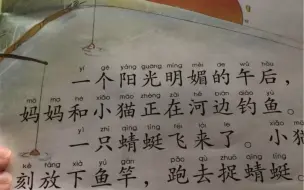 yí gè yáng guāng míng mèi de wǔ hòu
一个阳光明媚的午后，
mā ma hé xiǎo māo zhèng zài hé biān diào yú
妈妈和小猫正在河边钓鱼。
yì zhī qīng tíng fēi lái le xiǎo
一只蜻蜓飞来了。小猫
kè fàng xià yú gān pǎo qù zhuō qīng tíng
刻放下鱼竿，跑去捉蜻蜓。